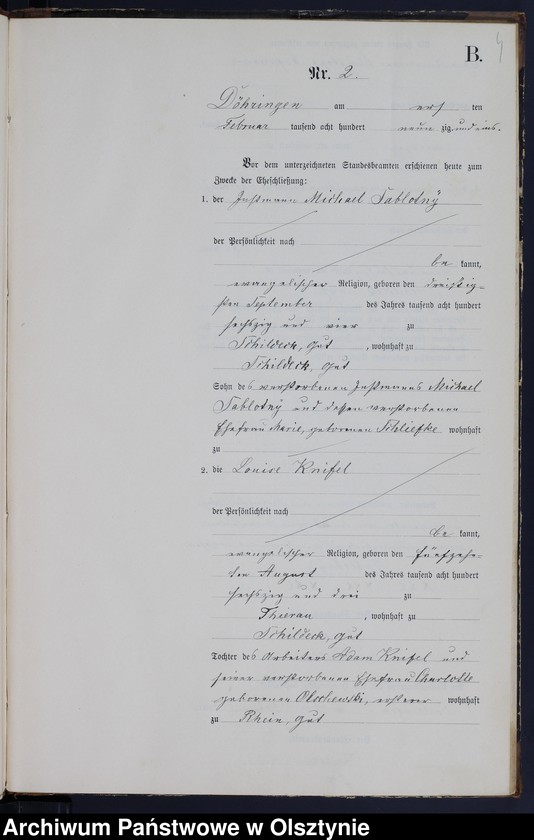 B.
4
Nr. 2.
Döhringen am ersten
Februar tausend acht hundert neunzig und eins.
Vor dem unterzeichneten Standesbeamten erschienen heute zum
Zwecke der Eheschließung:
1. der Instmann Michael Sablotny
der Persönlichkeit nach
be kannt,
evangelischer Religion, geboren den dreißig-
sten September des Jahres tausend acht hundert
sechszig und vier zu
Schildeck, Gut, wohnhaft zu
Schildeck, Gut
Sohn des verstorbenen Instmanns Michael
Sablotny und dessen verstorbenen
Ehefrau Marie, geborenen Schliefke wohnhaft
zu
2. die Louise Knifel
der Persönlichkeit nach
be kannt,
evangelischer Religion, geboren den fünfzehn-
ten August des Jahres tausend acht hundert
sechszig und drei zu
Thierau, wohnhaft zu
Schildeck, Gut
Tochter des Arbeiters Adam Knifel und
seiner verstorbenen Ehefrau Charlotte
geborenen Olschewski, ersterer wohnhaft
zu Rhein, Gut
Archiwum Państwowe w Olsztynie